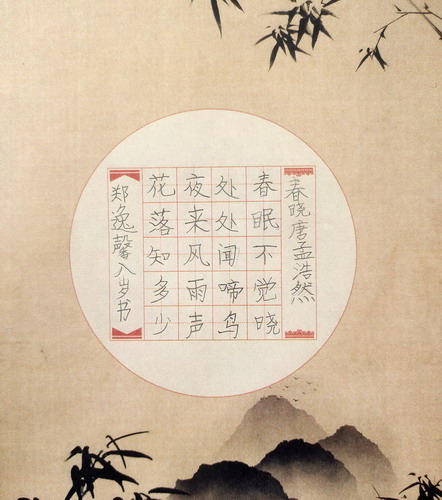 春晓唐孟浩然
春眠不觉晓
处处闻啼鸟
夜来风雨声
花落知多少
郑逸馨八岁书